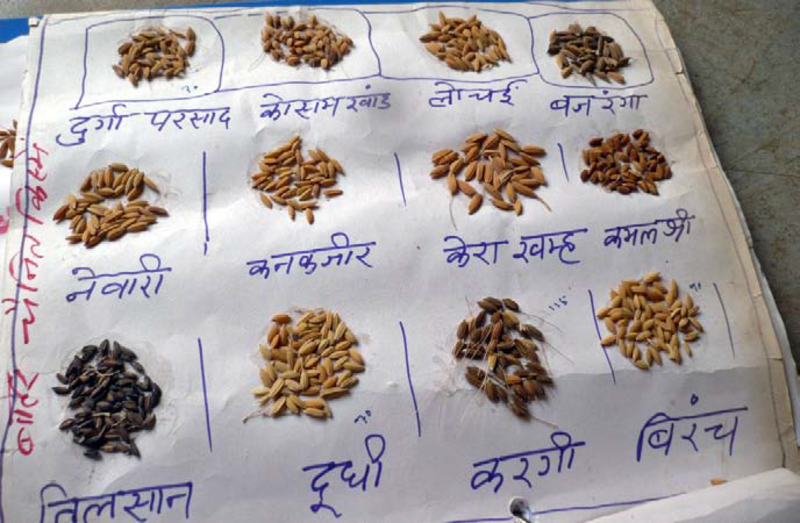 दुर्गा परसाद कोसामखांड लोचई बजरंगा
नेवारी कनकजीर केराखम्ह कमलश्री
तिलसान दूधी करगी बिरंच
बाहर चैनित किस्में